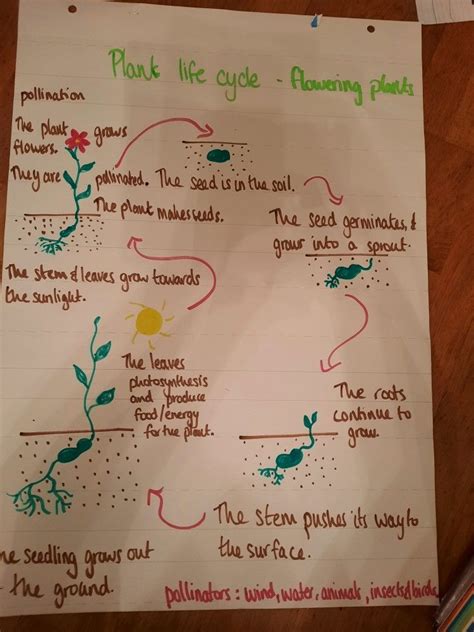 Plant life cycle - flowering plants
pollination
The plant grows
flowers.
They are pollinated.
The plant makes seeds.
The seed is in the soil.
The seed germinates, &
grows into a sprout.
The roots
continue to
grow.
The stem pushes its way to
the surface.
The seedling grows out
the ground.
The leaves
photosynthesis
and produce
food/energy
for the plant.
The stem & leaves grow towards
the sunlight.
pollinators : wind, water, animals, insects & birds